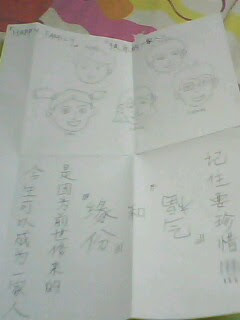 "HAPPY FAMILY"
今生可以成为一家人
是因为前世修来的
"缘份"
和
"福气"
记住要珍惜!!!